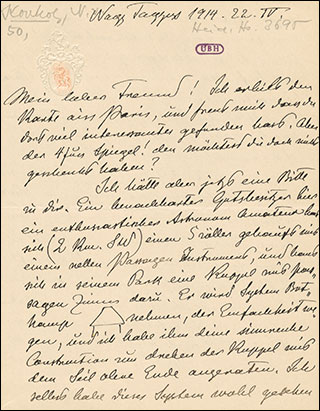 50,
Heid. Hs. 3695
Nagy Tagyos 1914. 22. IV
UBH
Mein lieber Freund! Ich erhielt deine
Karte aus Paris, und freue mich dass du
dort viel interessantes gefunden hast. Aber
der 4 fuss Spiegel! den möchtest du doch nicht
geschenkt haben?
Ich hätte aber jetzt eine Bitte
zu dir. Ein benachbarter Gutsbesitzer hier
ein enthusiastisches Astronom Amateur hat
sich (2 Km. SW) einen 5 zöller gekauft mit
einem netten Passagen Instrument, und baut
sich in seinem Park eine Kuppel mit
sagen Zimmer darin. Er wird System
nehmen, der Einfachheit we-
gen, und ich habe ihm deine sinnreiche
Construction zum drehen der Kuppel mit
dem Seil ohne Ende angeraten. Ich
selbst habe dieses System wohl gesehen